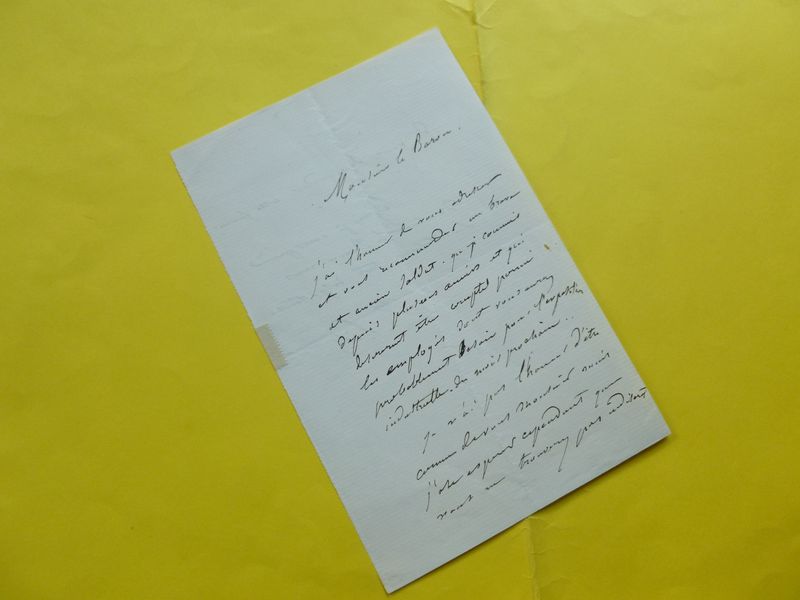 Monsieur le Baron.
j'ai l'honneur de vous adresser
et vous recommander un brave
et ancien soldat. que je connais
depuis plusieurs années et qui
désirerait être compté parmi
les employés dont vous aurez
probablement besoin pour l'exposition
industrielle du mois prochain.
Je n'ai pas l'honneur d'être
connu de vous Monsieur mais
j'ose espérer cependant que
vous ne trouverez pas